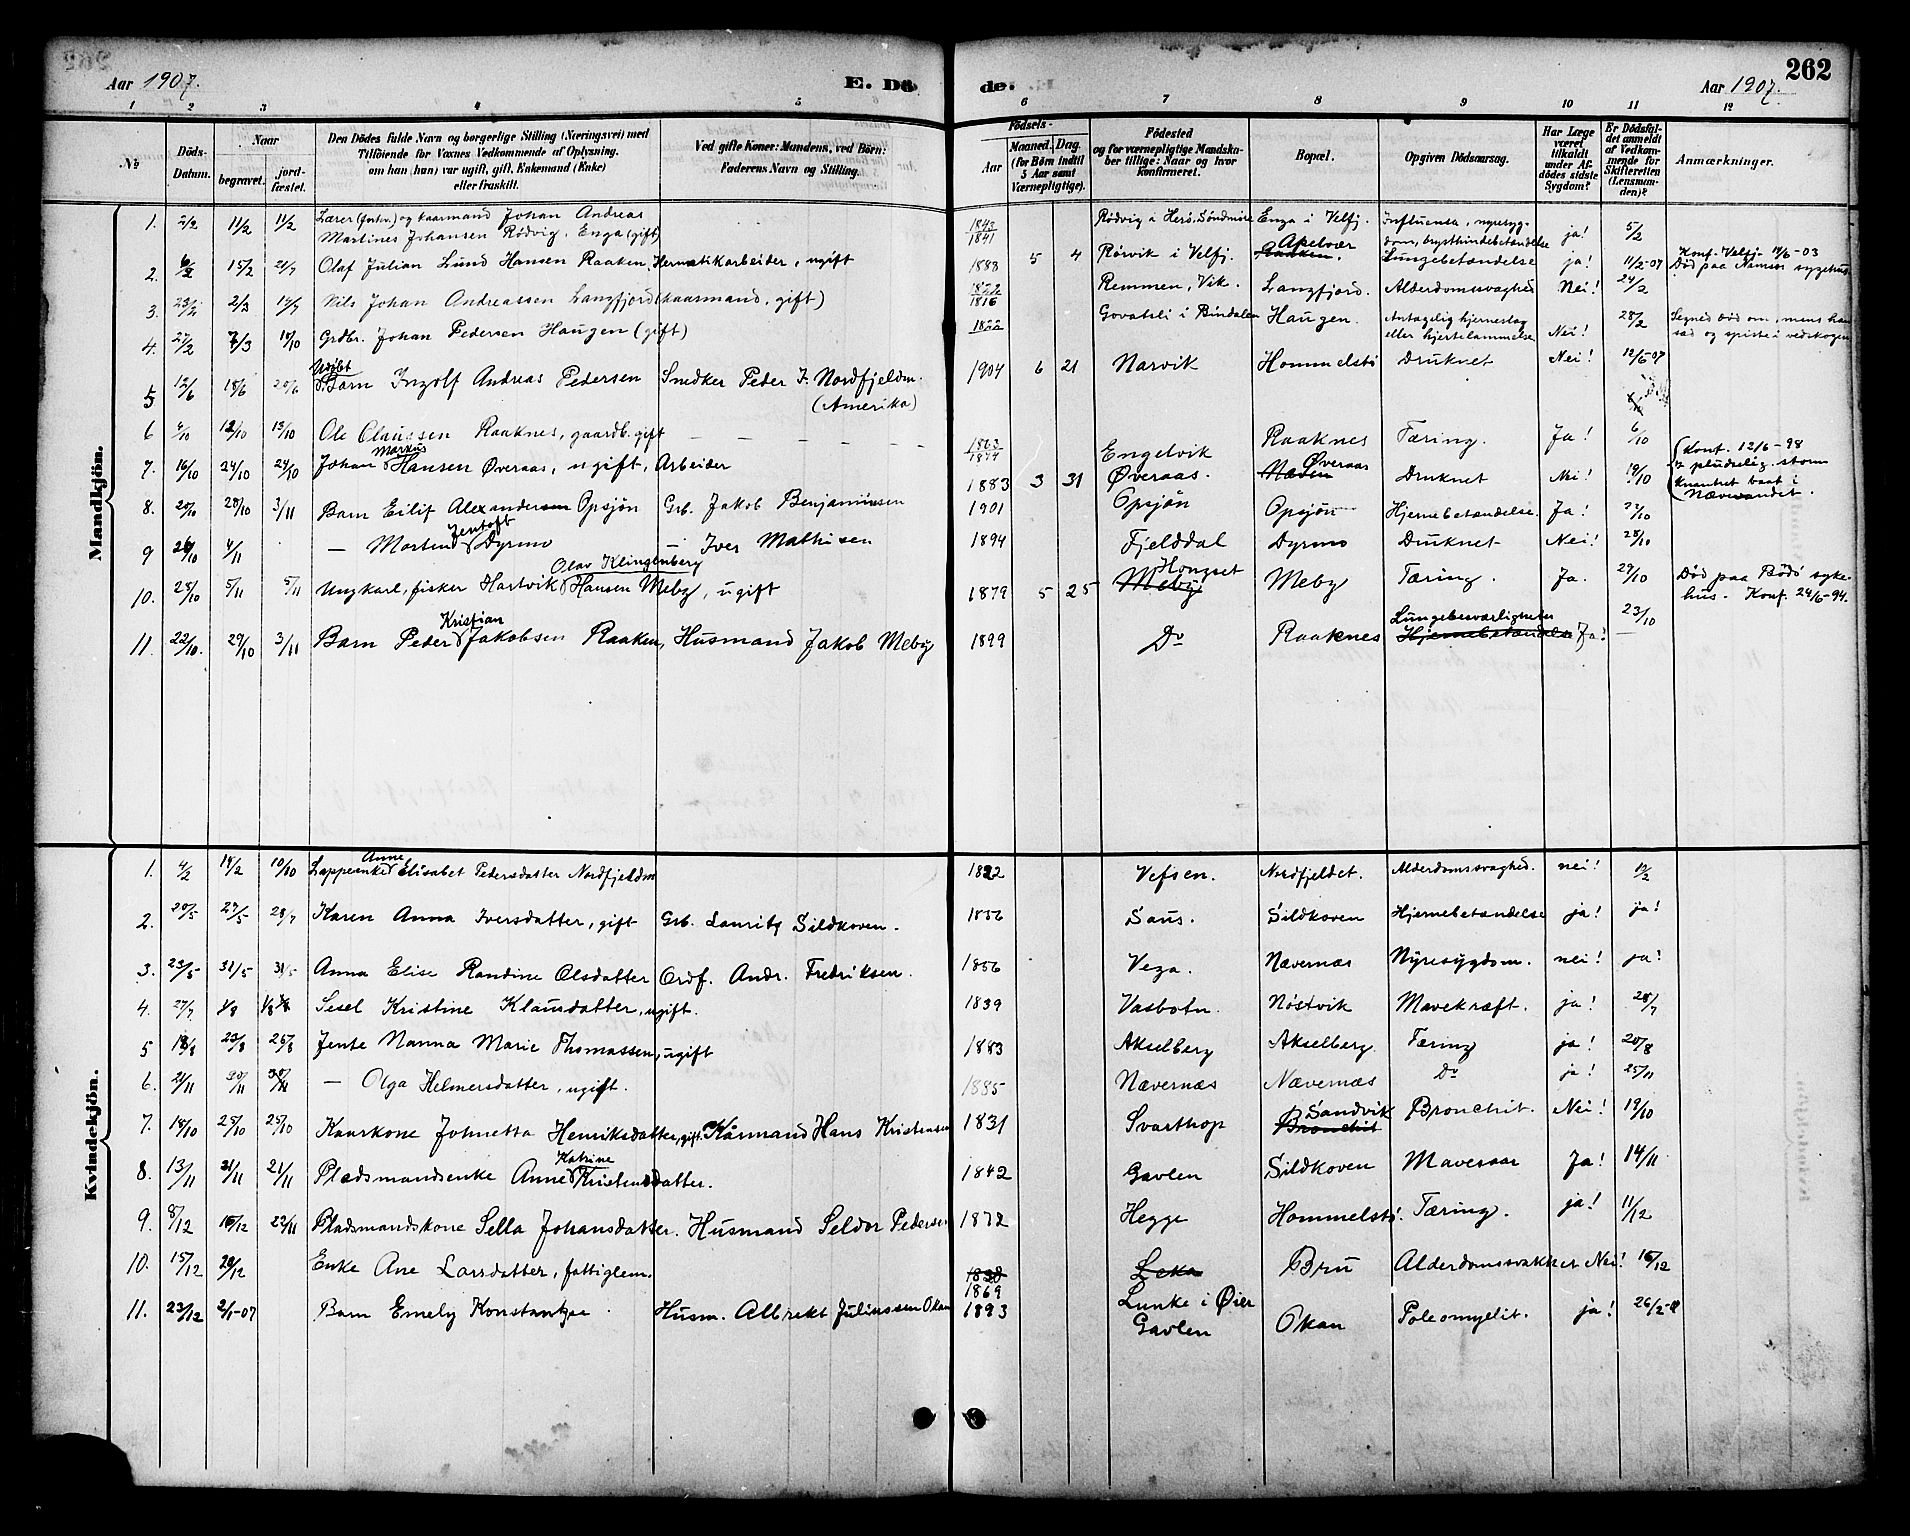 262
Aar 1907. E. Döde. Aar 1907.
1 2 3 4 5 6 7 8 9 10 11 12
No
Döds-Datum.
Naar
begravet.
jordfæstet.
Den Dödes fulde Navn og borgerlige Stilling (Næringsvei) med
Tilföiende for Voxnes Vedkommende af Oplysning,
om han (hun) var ugift, gift, Enkemand (Enke)
eller fraskilt.
Ved gifte Koner: Mandens, ved Börn:
Faderens Navn og Stilling.
Födsels-
Aar
Maaned. Dag.
(for Börn indtil
5 Aar samt
Værnepligtige).
Födested
og for værnepligtige Mandskaber tillige: Naar og hvor
konfirmeret.
Bopæl.
Opgiven Dödsaarsag.
Har Læge været tilkaldt under Afdödes sidste Sygdom?
Er Dödsfaldet anmeldt af Vedkommende for Skifteretten (Lensmanden)?
Anmærkninger.
Mandkjön.
1. 2/2 11/2 11/2 Lærer (forhv.) og kaarmand Johan Andreas
Martines Johansen Rødvig, Enga (gift) 1841 Rødvig i Herö, Söndmöre Enga i Velfj. Influensa, nyresygdom, brysthindebetændelse ja! 5/2
2. 6/2 15/2 21/7 Olaf Julian Lund Hansen Raaken, Hermetikarbeider, ugift 1888 5 4 Rörvik i Velfj. Raaken. Apelvær Lungebetændelse ja! 11/2-07 Konf. Velfj. 14/6-03
Död paa Namsos sygehus
3. 23/2 2/3 14/7 Nils Johan Andreassen Langfjord (kaarmand, gift) 1816 Remmen, Vik. Langfjord. Alderdomssvaghed Nei! 24/2
4. 27/2 7/3 18/10 Grdbr. Johan Pedersen Haugen (gift) 1822 Govatsli i Bindalen Haugen. Antagelig hjerneslag
eller hjertelammelse Nei! 28/2 Segned død om, mens han
sad og spiste i vedskogen
5 12/6 18/6 20/6 Barn Ingolf Andreas Pedersen Snedker Peder J. Nordfjeldm.
(Amerika) 1904 6 21 Narvik Hommelstø Druknet Nei! 12/6-07
6 4/10 12/10 13/10 Ole Claussen Raaknes, gaardb. gift Engelvik Raaknes Tæring. Ja! 6/10
7. 16/10 24/10 24/10 Johan Markus Hansen Øveraas, ugift, Arbeider 1883 3 31 Øveraas. Næven Øveraas Druknet Nei! 19/10 Konf. 12/6-98
pludselig storm
kvantret baat i
Nævevandet.
8. 20/10 28/10 3/11 Barn Eilif Alexandersen Opsjön Grb. Jakob Benjaminsen 1901 Opsjön Opsjön Hjernebetændelse. Ja! 22/10
9 26/10 4/11 — Morten Jentoft Dyrmo — Iver Mathisen 1894 Fjelddal Dyrmo Druknet Nei! 28/10
10. 25/10 5/11 5/11 Ungkarl, fisker Hartvik Olav Klingenberg Hansen Meby, ugift 1879 5 25 Meby Hongset Meby Tæring. Ja. 29/10 Död paa Bodö sykehus. Konf. 24/6-94.
11. 22/10. 29/10 3/11 Barn Peder Kristian Jakobsen Raaken, Husmand Jakob Meby 1899 Do Raaknes Lungebesværligheder Hjernebetændelse Ja! 23/10
Kvindekjön.
1. 4/2 14/2 10/10 Lappeenke Anne Elisabet Pedersdatter Nordfjeldm 1822 Vefsen. Nordfjeldet. Alderdomssvaghed. nei! 12/2
2. 20/5 27/5 28/7 Karen Anna Iversdatter, gift Grb. Laurits Sildkoven. 1856 Saus. Sildkoven Hjernebetændelse ja! ja!
3. 23/5 31/5 31/5 Anna Elise Randine Olsdatter Ordf. Andr. Fredriksen. 1856 Vega. Nævernæs Nyresygdom. nei! ja!
4. 27/7 4/8 Sesel Kristine Klausdatter, ugift. 1839 Vasbotn. Nöstvik Mavekræft. ja! 28/7
5 18/8 25/8 25/8 Jente Nanna Marie Thomassen, ugift 1883 Akselberg Akselberg. Tæring ja! 20/8
6. 21/11 30/11 30/11 — Olga Helmersdatter, ugift. 1885 Nævernæs Nævernæs Do ja! 25/11
7. 18/10 25/10 25/10 Kaarkone Johnetta Henriksdatter, gift. Kårmand Hans Kristensen 1831 Svarthop Bronchit Sandvik Bronchit. Nei! 19/10
8. 13/11 21/11 21/11 Pladsmandsenke Anne Katrine Kristensdatter. 1842 Gavlen Sildkoven Mavesaar Ja! 14/11
9. 8/12 15/12 22/11 Pladsmandskone Sella Johansdatter. Husmand Seldor Pedersen 1872 Hegge Hommelstö. Tæring. ja! 11/12
10. 15/12 20/12 Enke Ane Larsdatter, fattiglem. 1869 Leka Lunke i Øier Bru Alderdomssvakhet Nei! 16/12
11. 23/12 2/1-07 Barn Emely Konstantze Husm. Albrekt Juliussen Okan 1893 Gavlen Okan Poleomyelit. ja! 26/2-8